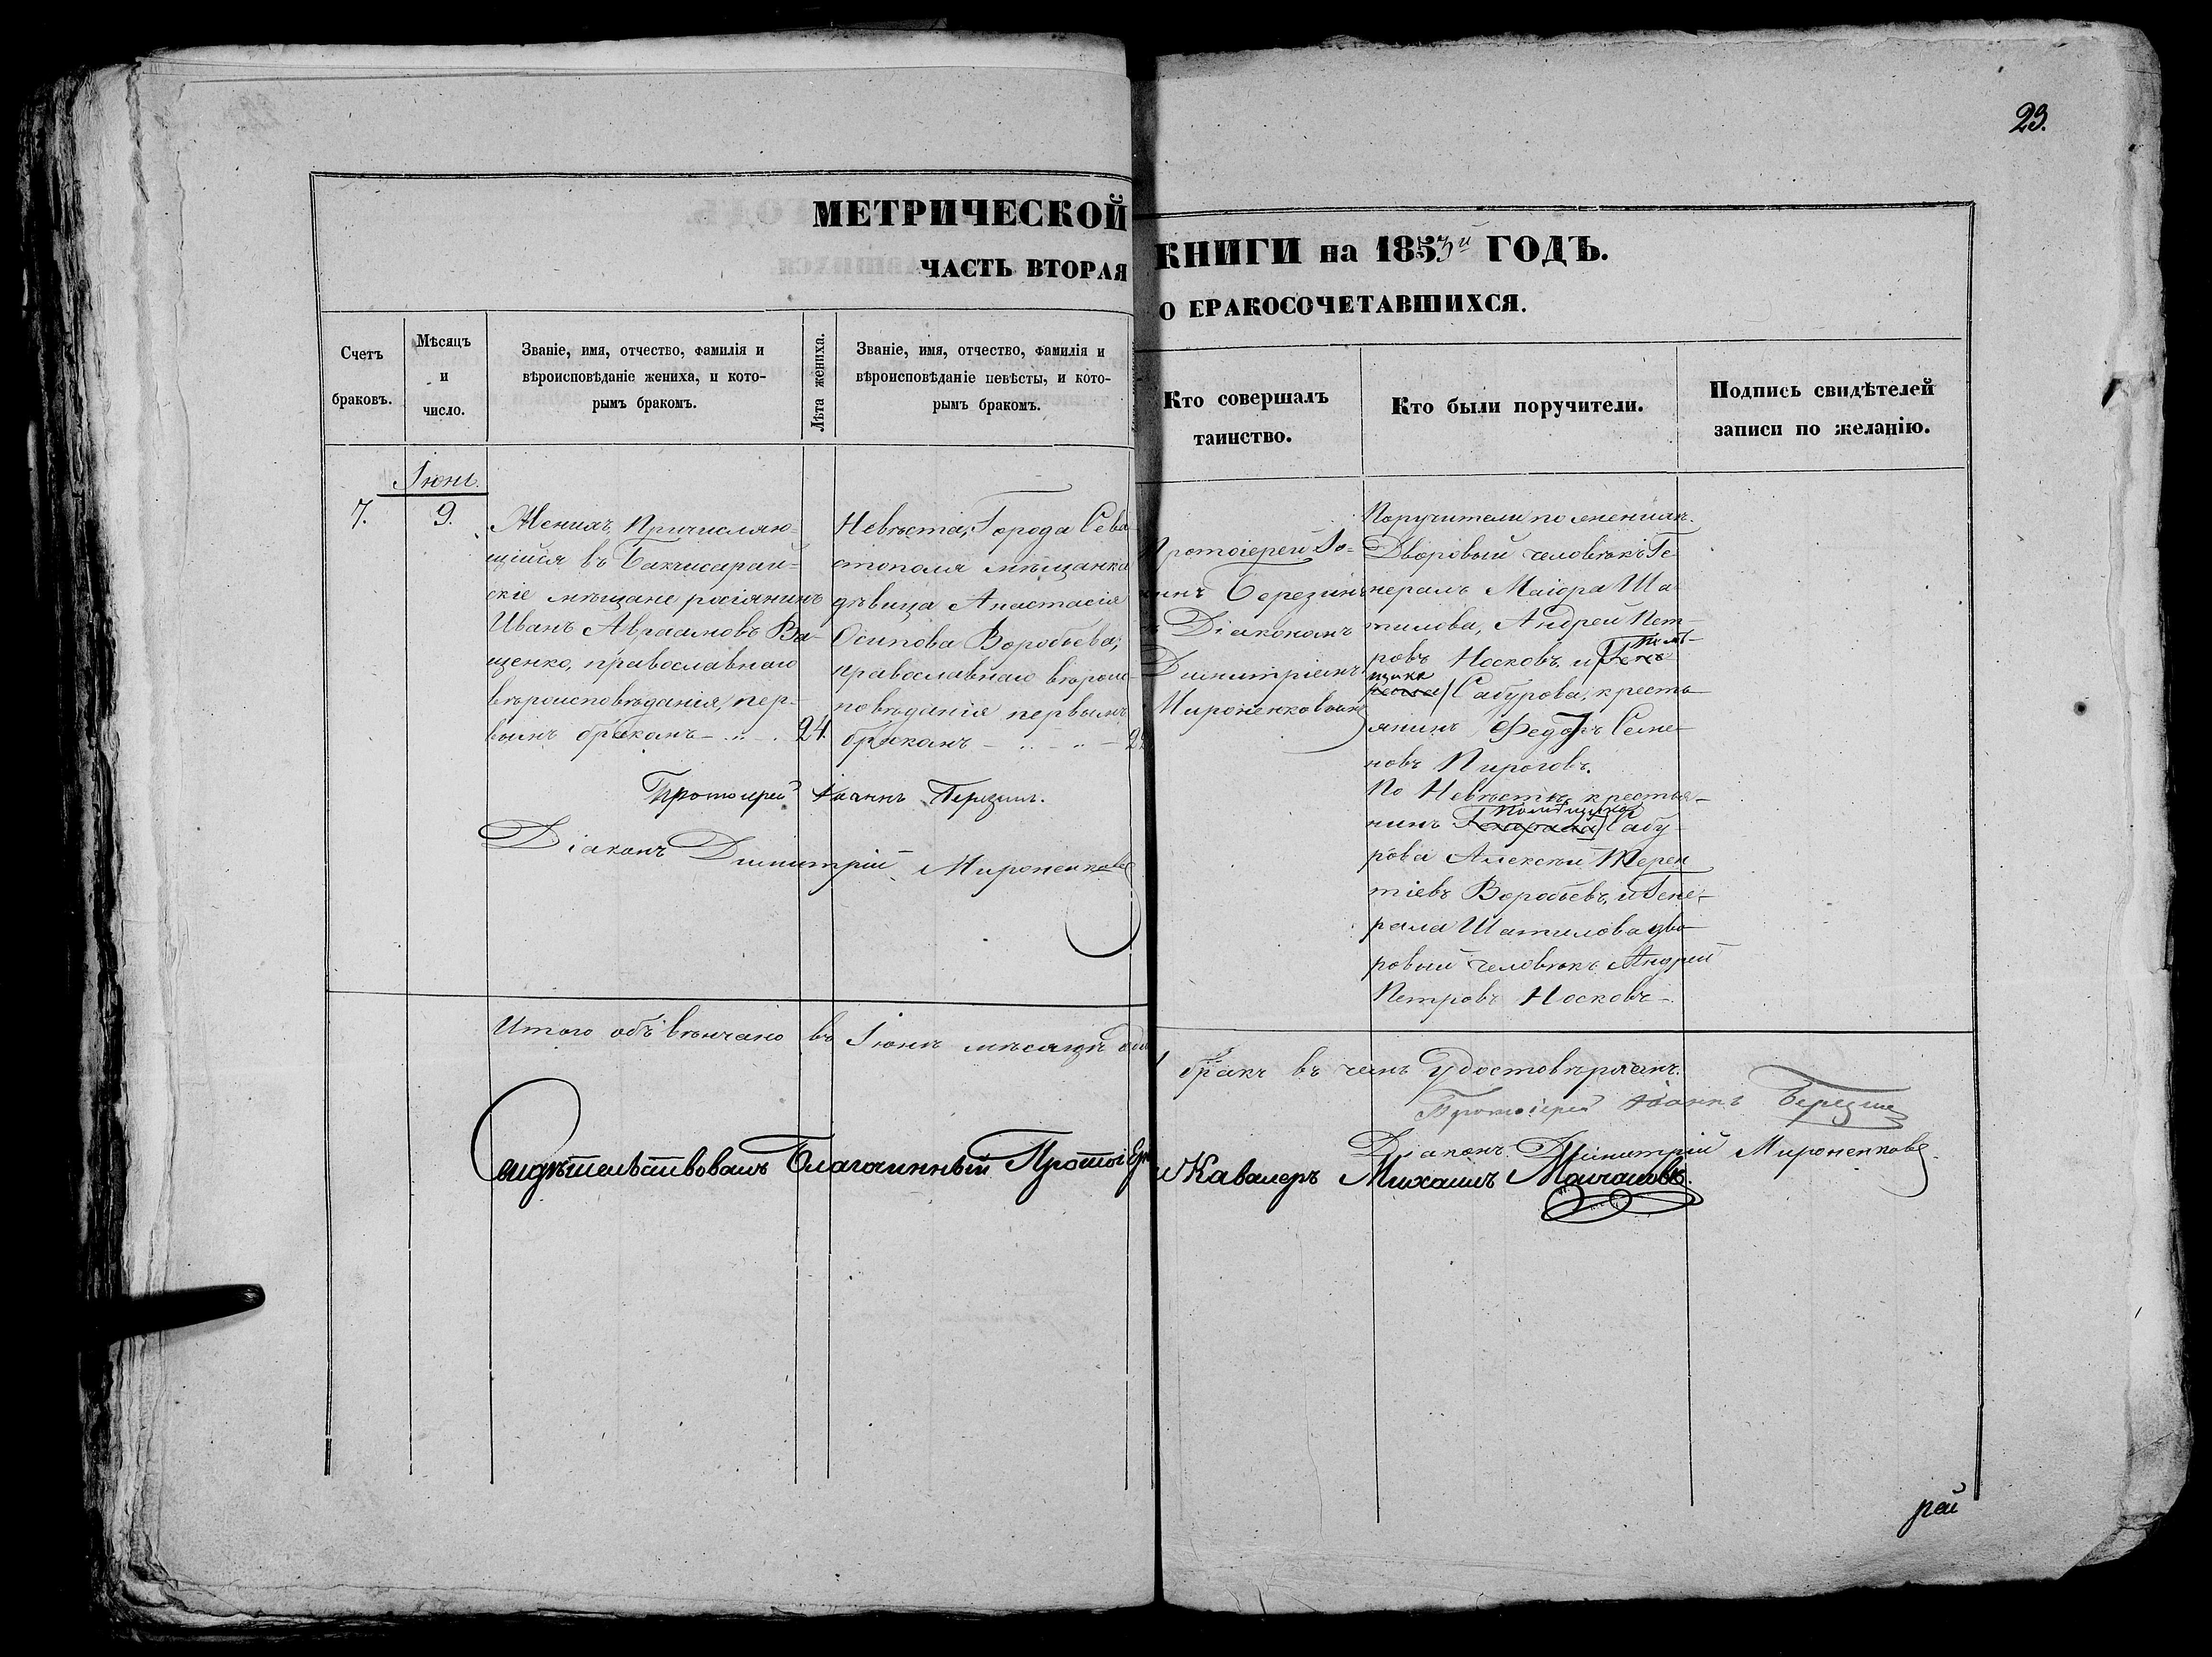 23.
МЕТРИЧЕСКОЙ КНИГИ на 1853й ГОДЪ.
ЧАСТЬ ВТОРАЯ О БРАКОСОЧЕТАВШИХСЯ.
Счетъ
браковъ.
Мѣсяцъ
и
число.
Званіе, имя, отчество, фамилія и
вѣроисповѣданіе жениха, и кото-
рымъ бракомъ.
Лѣта жениха.
Званіе, имя, отчество, фамилія и
вѣроисповѣданіе невѣсты, и кото-
рымъ бракомъ.
Кто совершалъ
таинство.
Кто были поручители.
Подпись свидѣтелей
записи по желанію.
Іюнь.
7.
9.
Женихъ, Причисляю-
щійся въ Бакчисарай-
скіе мѣщане
Иванъ Авраамовъ Ва-
щенко, православнаго
вѣроисповѣданія, пер-
вымъ бракомъ
24.
Невѣста, Города Сева-
стополя мѣщанка
дѣвица Анастасія
Осипова Воробьева,
православнаго вѣроис-
повѣданія первымъ
бракомъ
Протоіерей Іо-
аннъ Березинъ
съ Діакономъ
Димитріемъ
Мироненковымъ
Поручители по женихѣ.
Дворовый человѣкъ Ге-
нералъ Маіора Ша-
тилова, Андрей Пет-
ровъ Носковъ и помѣ-
щика Сабурова, кресть-
янинъ Федоръ Семе-
новъ Пироговъ.
По Невѣстѣ крестья-
нинъ Генерала помѣщика Сабу-
рова Алексѣй Терен
тіевъ Воробьевъ, и Гене-
рала Шатилова дво-
ровый человѣкъ Андрей
Петровъ Носковъ
Протоіерей Іоаннъ Березинъ.
Діаконъ Димитрій Мироненковъ
Итого объ вѣнчано въ Іюнѣ мѣсяцѣ бракъ въ чемъ удостовѣряемъ.
Протоіерей Іоаннъ Березинъ
Діаконъ Димитрій Мироненковъ.
Свидѣтельствовалъ Благочинный Протоіерей и Кавалеръ Михаилъ
рей